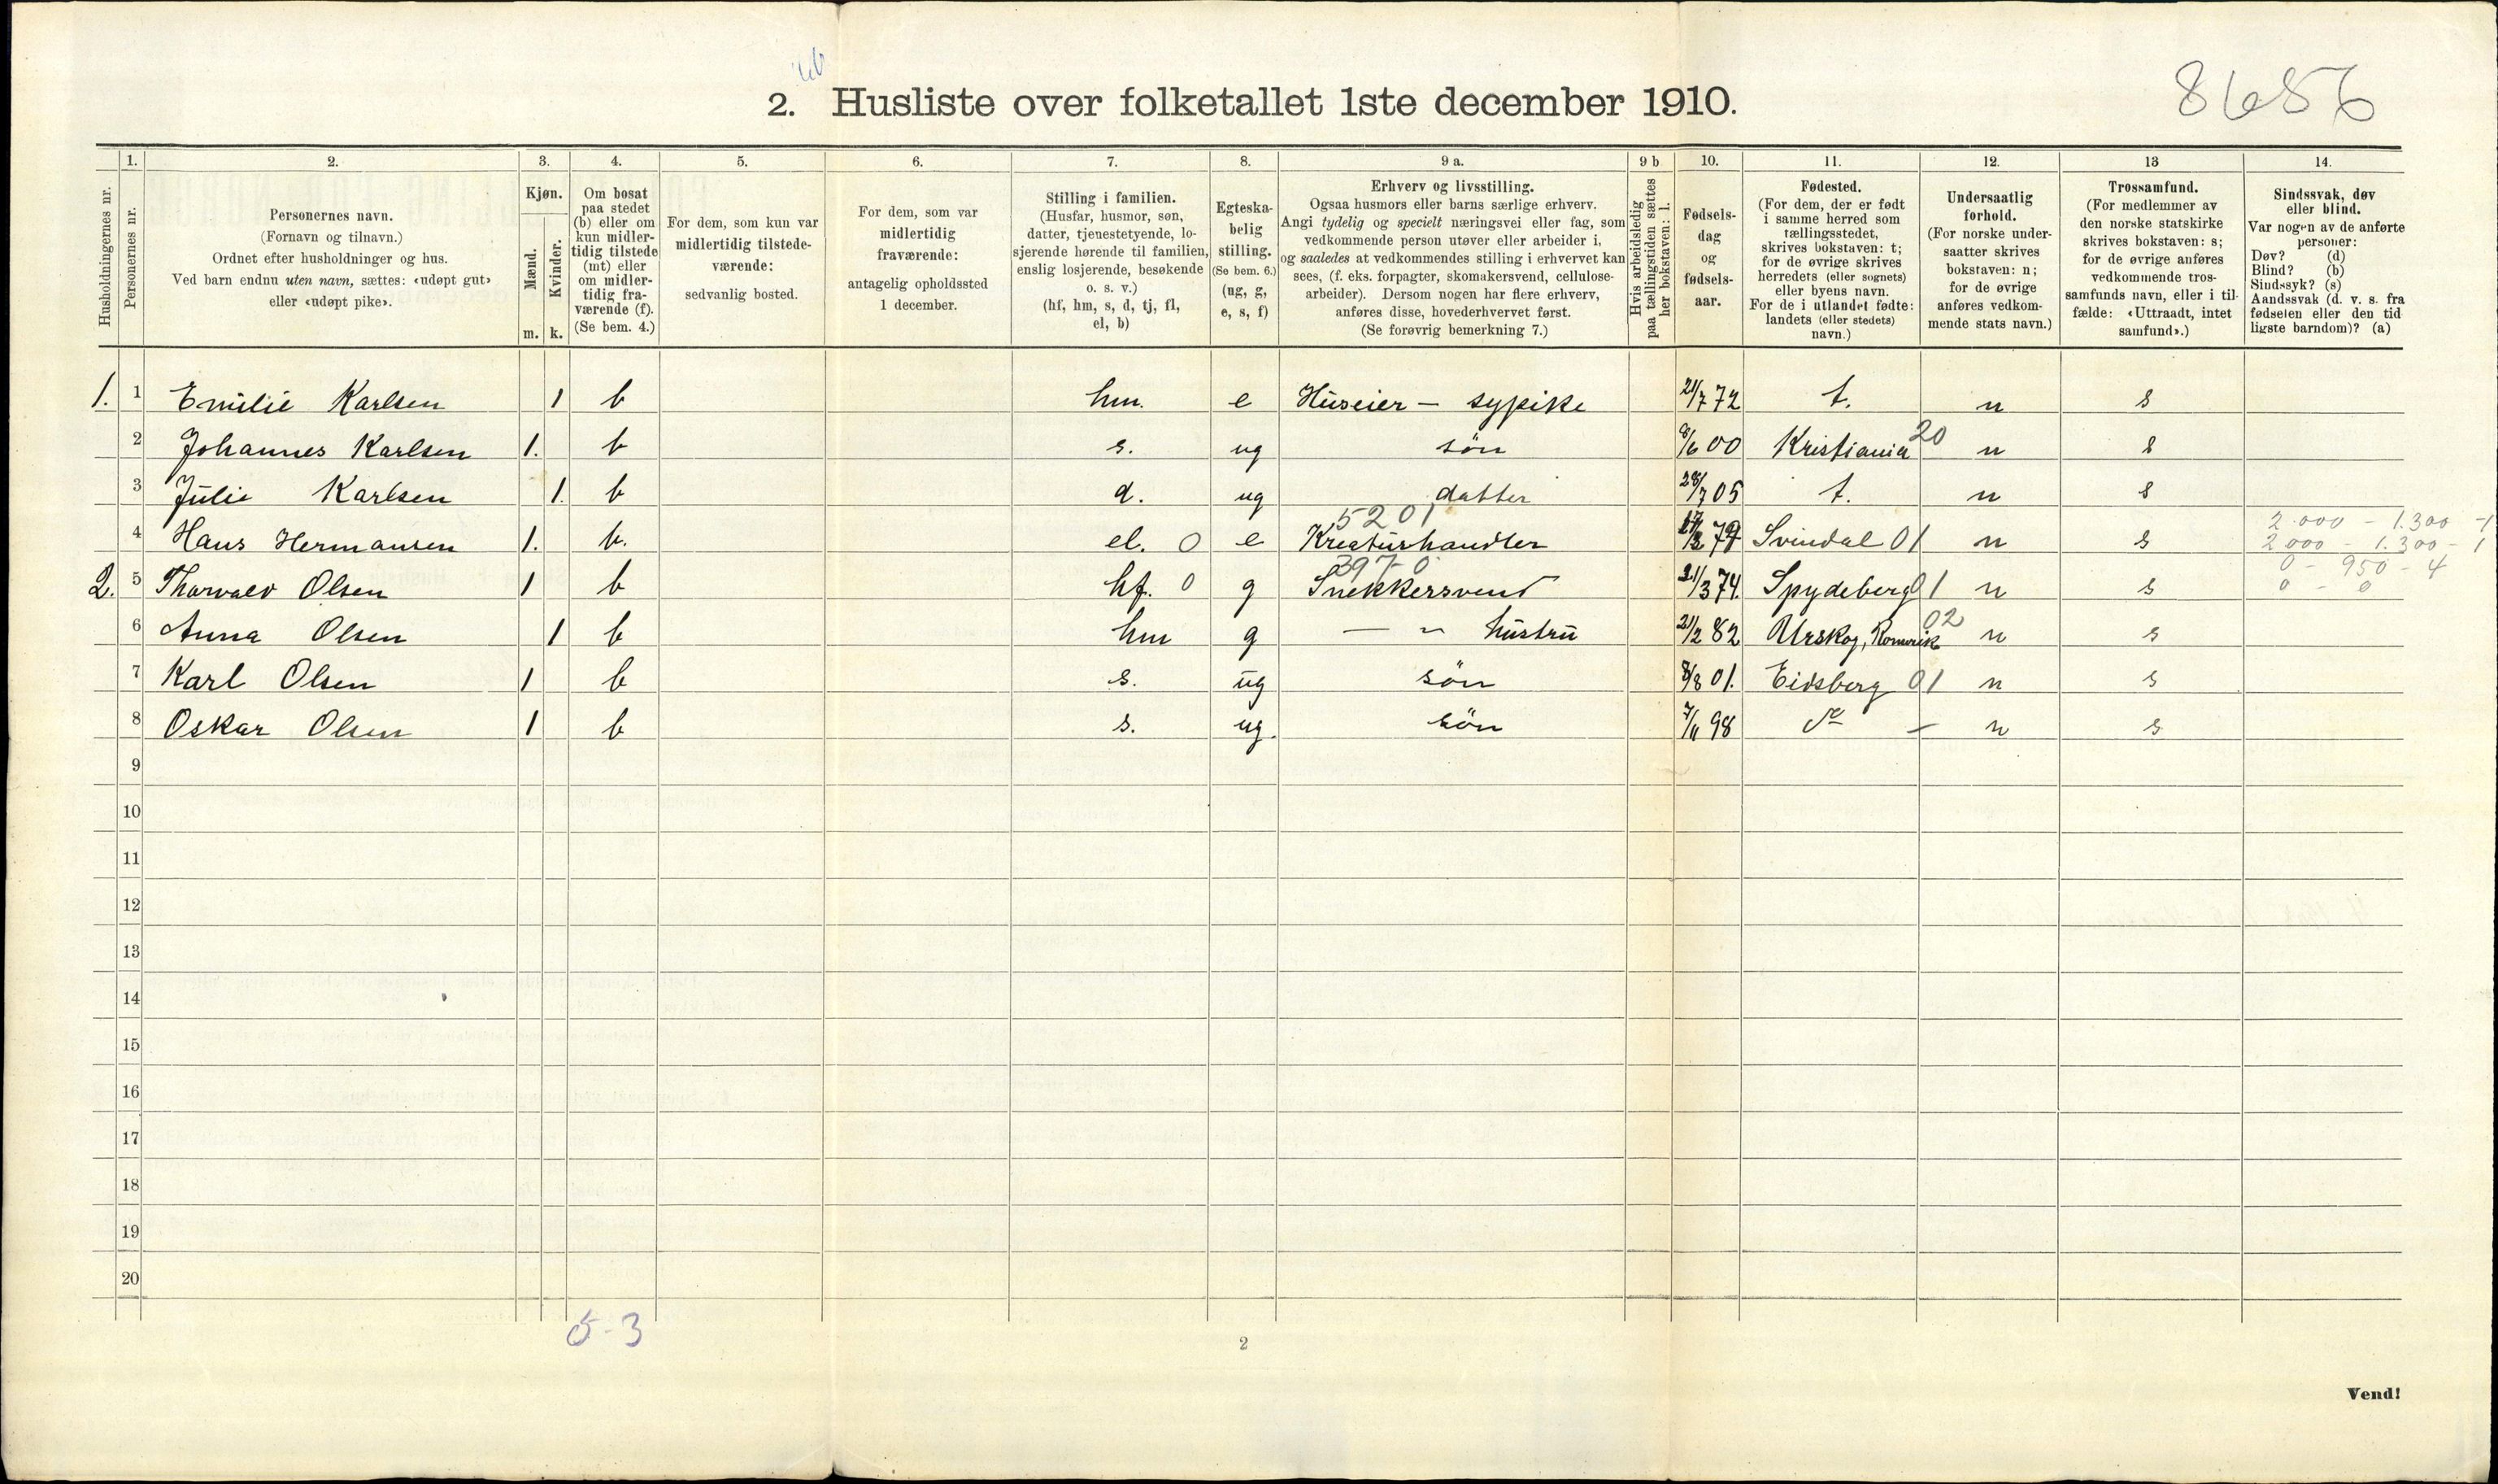 2. Husliste over folketallet 1ste december 1910.
8656
Husholdningernes nr.
1. Personernes nr.
2. Personernes navn.
(Fornavn og tilnavn.)
Ordnet efter husholdninger og hus.
Ved barn endnu uten navn, sættes: «udøpt gut»
eller «udøpt pike».
3. Kjøn.
Mænd. m.
Kvinder. k.
4. Om bosat
paa stedet
(b) eller om
kun midler-
tidig tilstede
(mt) eller
om midler-
tidig fra-
værende (f).
(Se bem. 4.)
5. For dem, som kun var
midlertidig tilstede-
værende:
sedvanlig bosted.
6. For dem, som var
midlertidig
fraværende:
antagelig opholdssted
1 december.
7. Stilling i familien.
(Husfar, husmor, søn,
datter, tjenestetyende, lo-
sjerende hørende til familien,
enslig losjerende, besøkende
o. s. v.)
(hf, hm, s, d, tj, fl,
el, b)
8. Egteska-
belig
stilling.
(Se bem. 6.)
(ug, g,
e, s, f)
9 a. Erhverv og livsstilling.
Ogsaa husmors eller barns særlige erhverv.
Angi tydelig og specielt næringsvei eller fag, som
vedkommende person utøver eller arbeider i,
og saaledes at vedkommendes stilling i erhvervet kan
sees, (f. eks. forpagter, skomakersvend, cellulose-
arbeider). Dersom nogen har flere erhverv,
anføres disse, hovederhvervet først.
(Se forøvrig bemerkning 7.)
9 b Hvis arbeidsledig
paa tællingstiden sættes
her bokstaven: l.
10. Fødsels-
dag
og
fødsels-
aar.
11. Fødested.
(For dem, der er født
i samme herred som
tællingsstedet,
skrives bokstaven: t;
for de øvrige skrives
herredets (eller sognets)
eller byens navn.
For de i utlandet fødte:
landets (eller stedets)
navn.)
12. Undersaatlig
forhold.
(For norske under-
saatter skrives
bokstaven: n;
for de øvrige
anføres vedkom-
mende stats navn.)
13 Trossamfund.
(For medlemmer av
den norske statskirke
skrives bokstaven: s;
for de øvrige anføres
vedkommende tros-
samfunds navn, eller i til-
fælde: «Uttraadt, intet
samfund».)
14. Sindssvak, døv
eller blind.
Var nogen av de anførte
personer:
Døv? (d)
Blind? (b)
Sindssyk? (s)
Aandssvak (d. v. s. fra
fødselen eller den tid-
ligste barndom)? (a)
1. 1 Emilie Karlsen 1 b hm. e Huseier - sypike 21/7 72 t. n s
2 Johannes Karlsen 1. b s. ug søn 8/6 00 Kristiania 20 n s
3 Julie Karlsen 1. b d. ug datter 28/7 05 t. n s
5201
4 Hans Hermansen 1. b. el. 0 e Kreaturhandler Svindal 01 n s
2.000 - 1.300 - 1
2000 - 1.300 - 1
397-0
2. 5 Thorvald Olsen 1 b hf. 0 g Snekkersvend 21/3 74. Spydeberg 01 n s
0 - 950 - 4
0 - 0
6 Anna Olsen 1 b hm g — " hustru 21/2 82 Urskog, Romerik 02 n s
7 Karl Olsen 1 b s. ug søn 8/8 01. Eidsberg 01 n s
8 Oskar Olsen 1 b s. ug. søn 7/11 98 do - n s
9
10
11
12
13
14
15
16
17
18
19
20
5-3
2
Vend!